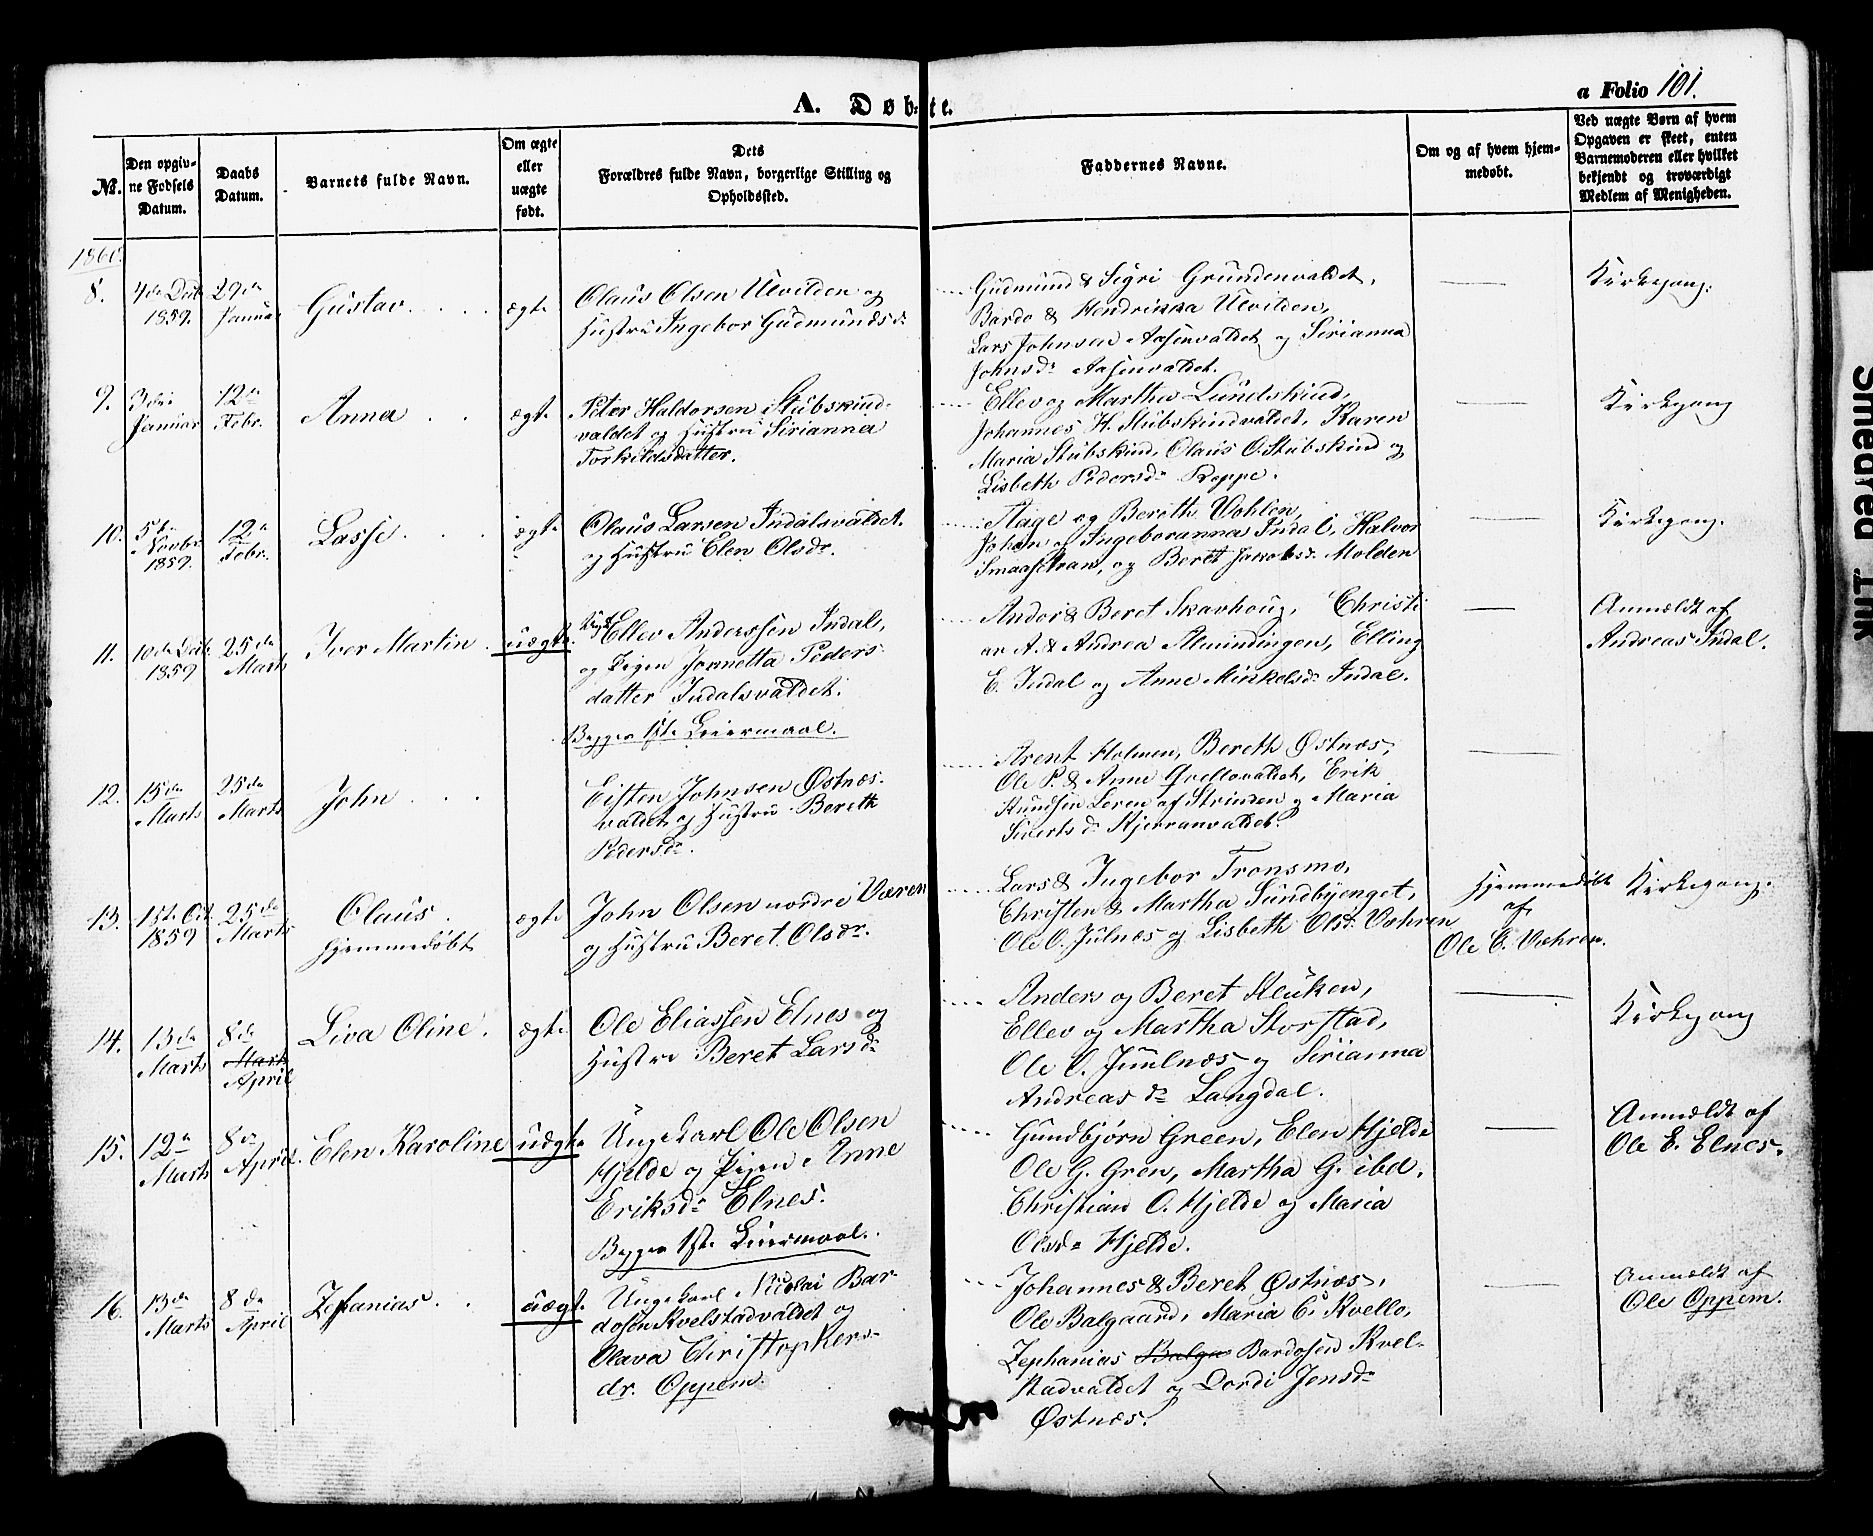 A. Døbte.
a Folio 101.
No.
Den opgiv-
ne Fødsels
Datum.
Daabs
Datum.
Barnets fulde Navn.
Om ægte
eller
uægte
født.
Dets
Forældres fulde Navn, borgerlige Stilling og
Opholdssted.
Faddernes Navne.
Om og af hvem hjem-
medøbt.
Ved uægte Børn af hvem
Opgaven er skeet, enten
Barnemoderen eller hvilket
bekjendt og troværdigt
Medlem af Menigheden.
1860.
8.
4de Decb.
1859.
29de
Januar
Gustav
ægte
Olaus Olsen Ulvilden og
Hustru Ingebor Gudmundsdr
Gudmund & Sigri Grundenvaldet,
Bardo & Hendrikka Ulvilden,
Lars Johnsen Aasenvaldet og Sirianna
Johnsdr Aasenvaldet.
Kirkegang.
9.
3die
Januar
12te
Febr.
Anna
ægte
Peter Haldorsen Stubskind-
valdet og Hustru Sirianna
Torkildsdatter.
Ellev og Martha Lundskind,
Johannes H. Stubskindvaldet, Karen
Maria Stubskind, Olaus O. Stubskind og
Lisbeth Pedersdr Reppe.
Kirkegang
10.
5te
Novbr.
1859.
12te
Febr.
Lasse
ægte
Olaus Larsen Indalsvaldet
og Hustru Elen Olsdr.
Aage og Bereth Vohlen,
John og Ingeboranna Indal, Halvor
og Beret Jakobsdr Molden
Kirkegang.
11.
10de Decb.
1859
25de
Marts
Iver Martin
uægte
Ellev Anderssen Indal,
og Pigen Jonnetta Peders
datter Indalsvaldet.
Begges 1ste Leiermaal.
Andor & Beret Skavhoug, Christi
an A. & Andrea Almindingen, Elling
E. Indal og Anne Minkelsdr Indal.
Anmældt af
Andreas Indal.
12.
15de
Marts
25de
Marts
John
Eisten Johnsen Østnæs-
valdet og Hustru Bereth
Pedersdr.
Arent Holmen, Bereth Østnæs,
Ole P. & Anne Qvellovaldet, Erik
Knudsen Leren af Strinden og Maria
Siverts dr Stjerranvaldet.
13.
1ste Oct.
1859
25de
Marts
Olaus
Hjemmedøbt
ægte
John Olsen nordre Væren
og Hustru Beret Olsdr.
Lars & Ingebor Tronsmo,
Christen & Martha Sundbyenget,
Ole O. Julnes og Lisbeth Olsdr Væhren
Hjemmedøbt
af
Ole O. Væhren.
Kirkegang.
14.
13de
Marts
8de
Marts
April
Liva Oline.
ægte
Ole Eliassen Elnes og
Hustru Beret Larsdr
Anders og Beret Kluken,
Ellev og Martha Storstad,
Ole O. Juulnæs og Sirianna
Andreas dr Langdal.
Kirkegang
15.
12te
Marts
8de
April
Elen Karoline
uægte
Ungekarl Ole Olsen
Hjelde og Pigen Anne
Eriksdr Elnes.
Begges 1ste Leiermaal.
Gundbjørn Green, Elen Hjelde
Ole G. Gren, Martha G. ibd,
Christian O. Hjelde og Maria
Olsdr Hjelde.
Anmældt af
Ole E. Elnes.
16.
13de
Marts
8de
April
Zephanias
uægte
Ungekarl Nicolai Bar-
dosen Kvelstadvaldet og
Olava Christophers-
dr. Oppem.
Johannes & Beret Østnæs,
Ole Balgaard, Maria C. Kvello,
Zephanias Balga Bardosen Kvel-
stadvaldet og Dordi Jensdr
Østnæs.
Anmældt af
Ole Oppem.